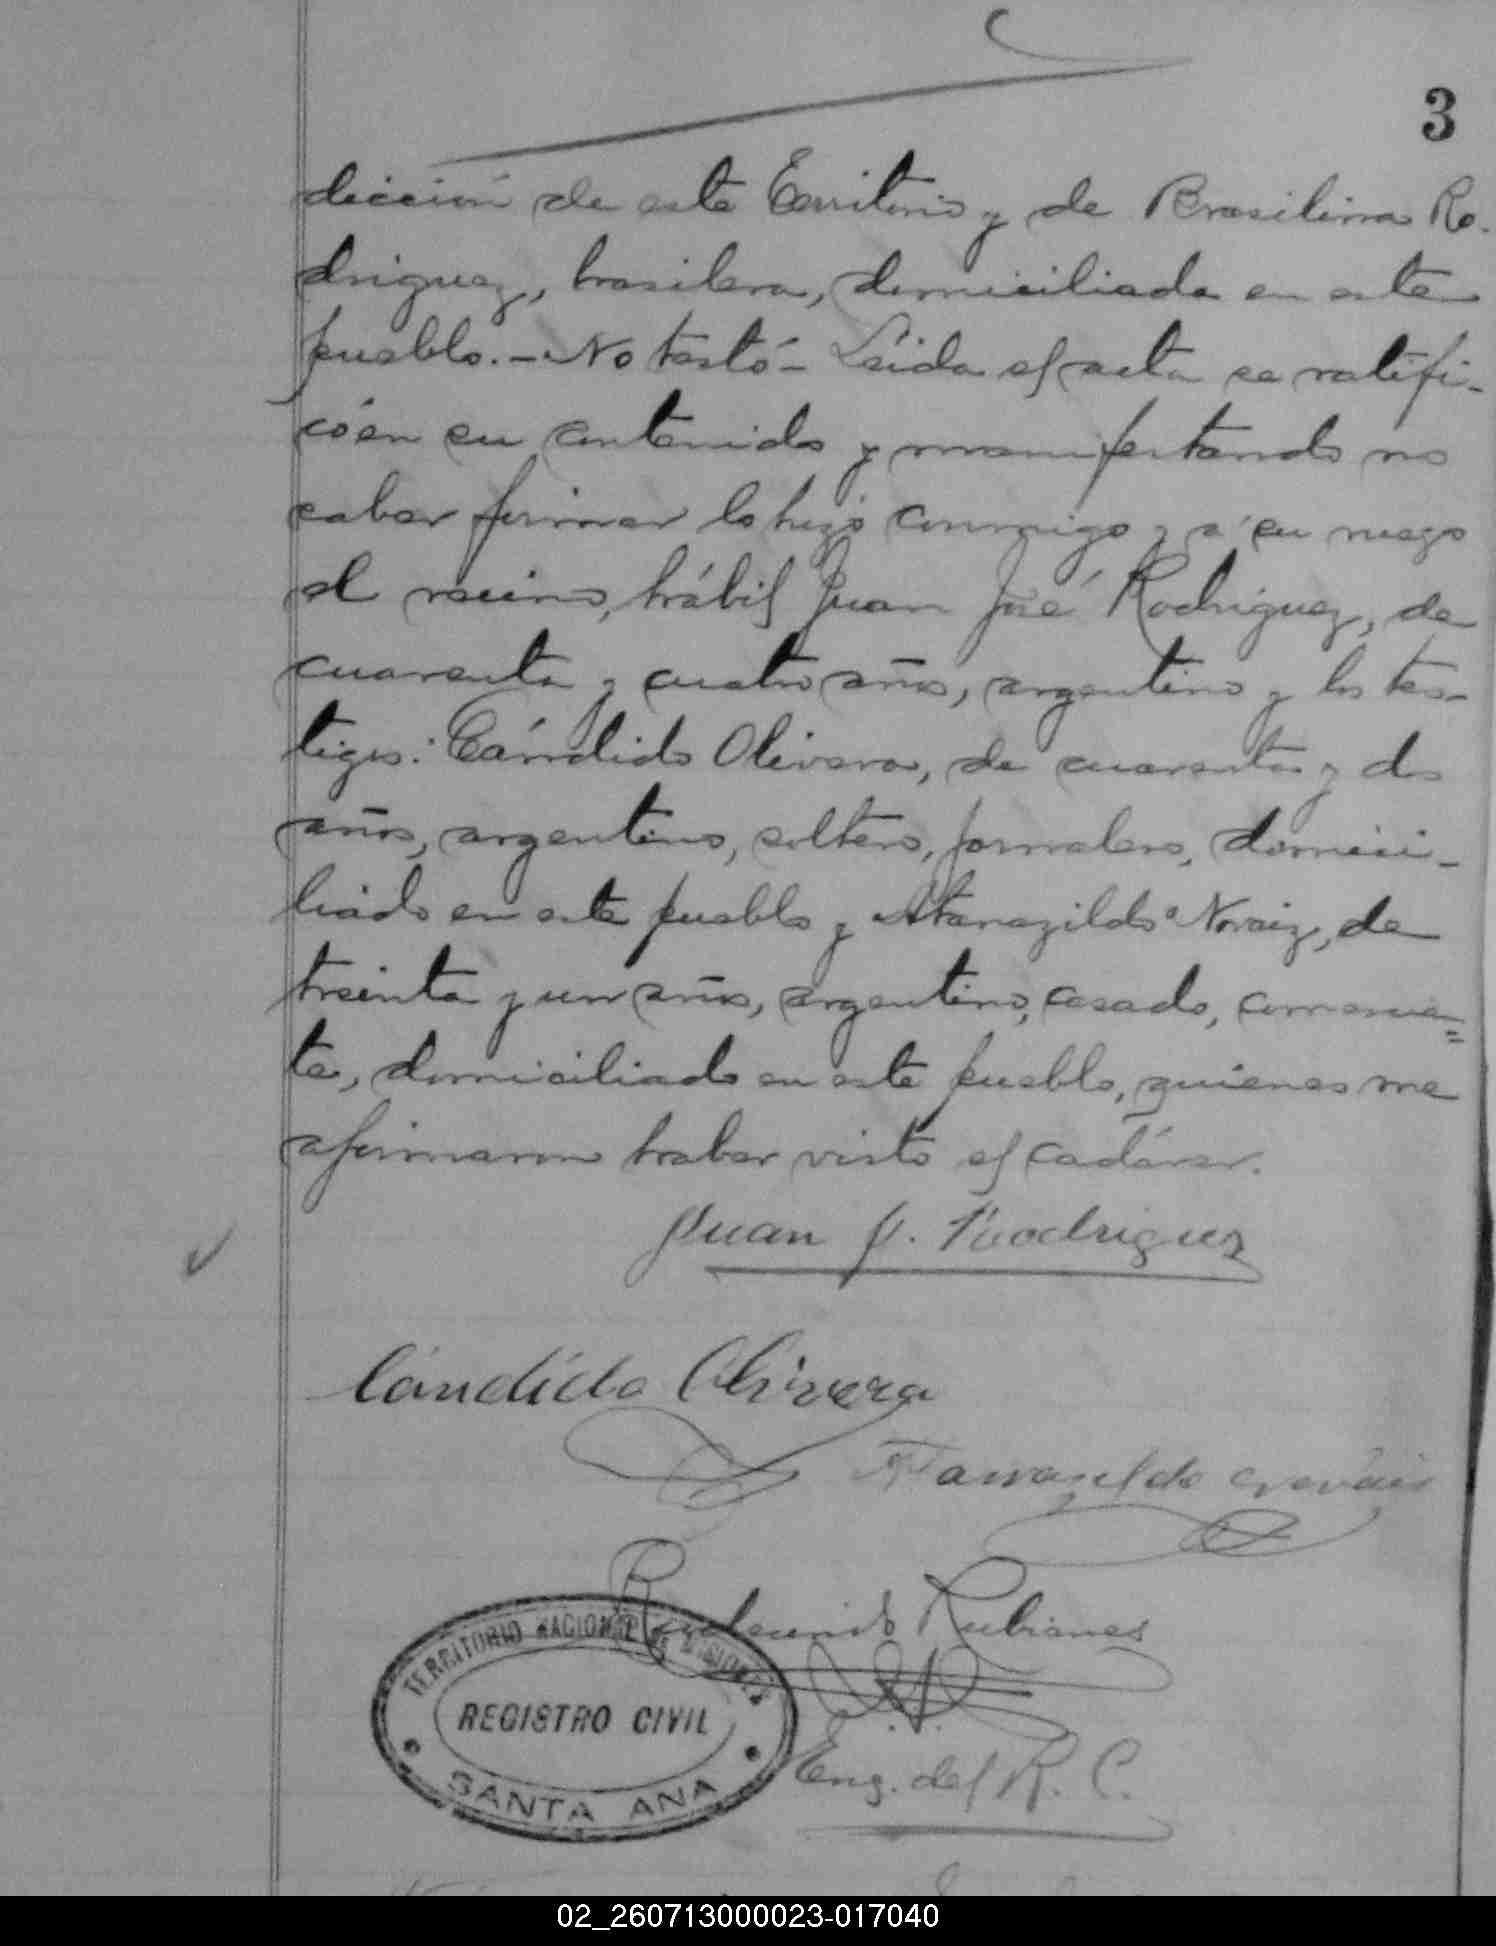 3
dicción de este Territorio y de Brasilina Ro-
driguez, brasilera, domiciliada en este
pueblo.- No testó- Leida el acta se ratifi-
có en su contenido y manifestando no
saber firmar lo hizo conmigo y a' su ruego
el vecino, hábil Juan José Rodriguez, de
cuarenta y cuatro años, argentino y los tes-
tigos: Cándido Olivera, de cuarenta y dos
años, argentino, soltero, jornalero, domici-
liado en este pueblo y Atanazildo Novaiz, de
treinta y un años, argentino, casado, comercian=
te, domiciliado en este pueblo, quienes me
afirmaron haber visto el cadáver.
Juan J. Rodriguez
Cándido Olivera
Rudecindo Rubianes
TERRITORIO NACIONAL DE MISIONES
REGISTRO CIVIL
SANTA ANA
Enc. del R. C.
02_260713000023-017040